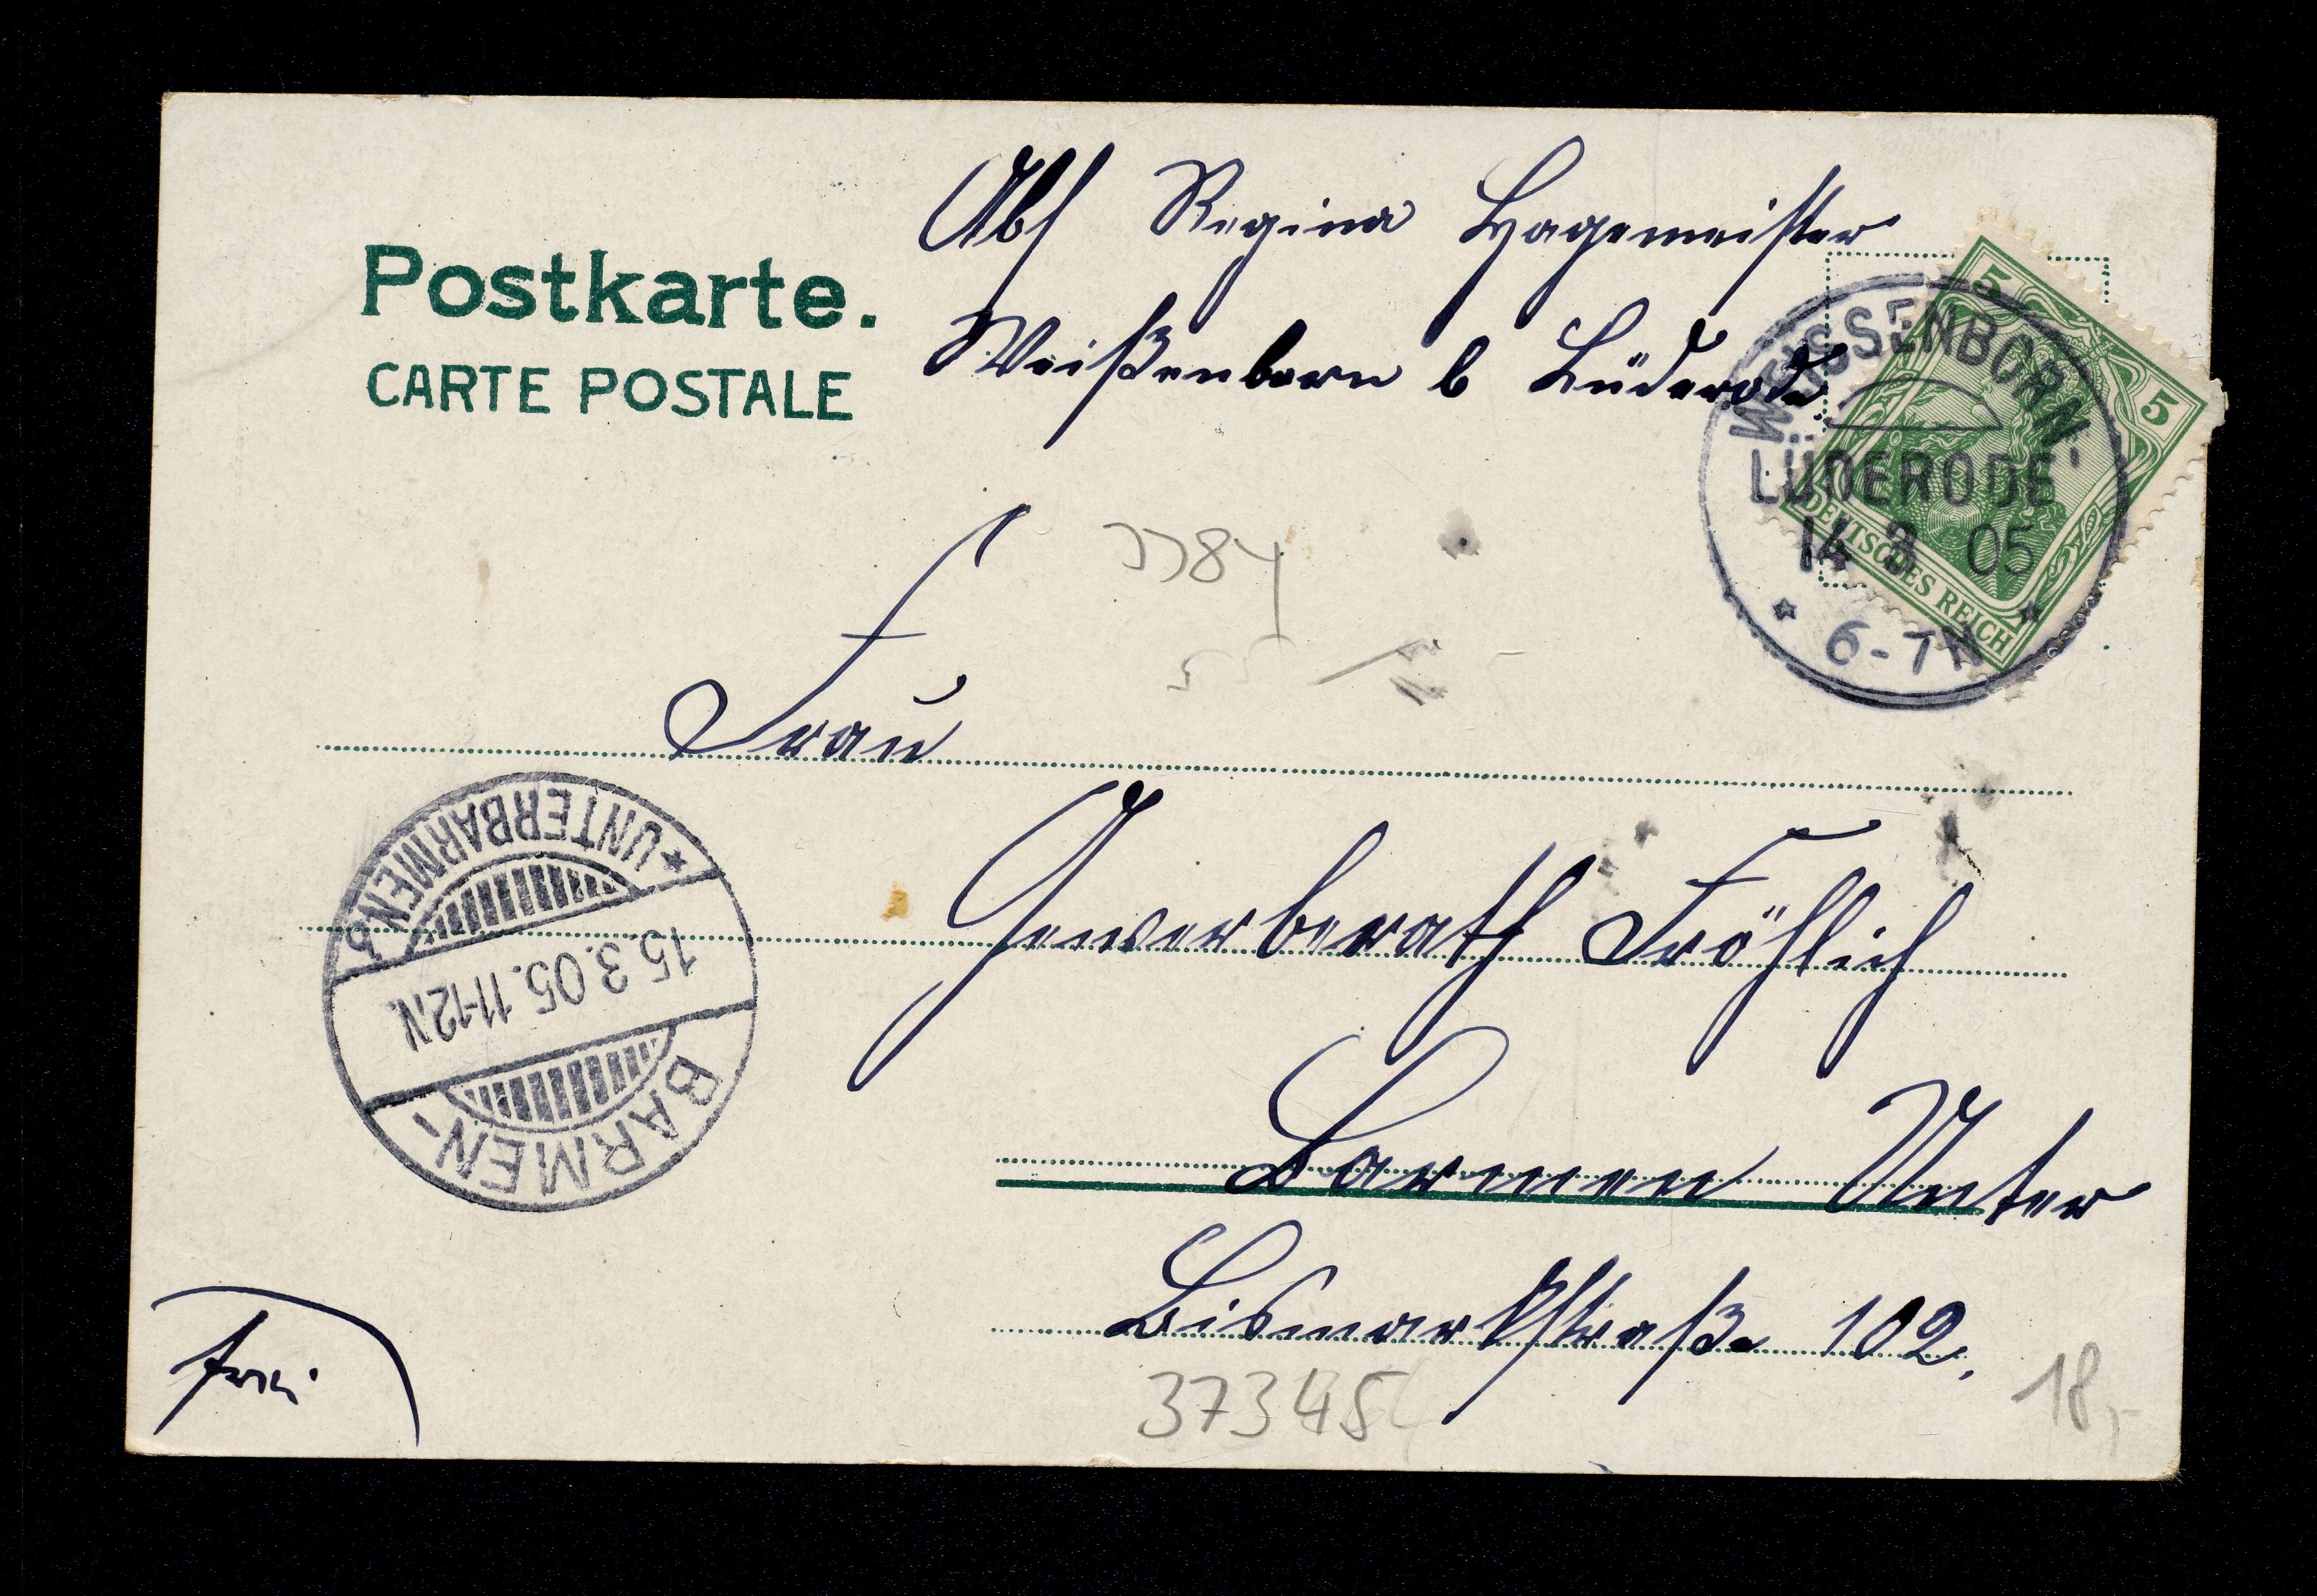 Abs Regina Hagemeister
Postkarte.
Weißenborn b Lüderode
CARTE POSTALE
5
5
DEUTSCHES REICH
WEISSENBORN-
LÜDERODE
14 3 05
6-7N
Frau
Gewerberath Fröhlich
Barmen Unter
Bismarkstraße 102.
BARMEN-
15.3.05.11-12N.
* UNTERBARMEN. b
frei
37345
18,-